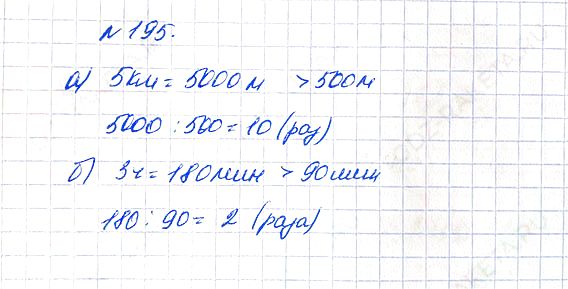 № 195.
а) 5км = 5000 м > 500м
5000 : 500 = 10 (раз)
б) 3ч = 180мин > 90мин
180 : 90 = 2 (раза)